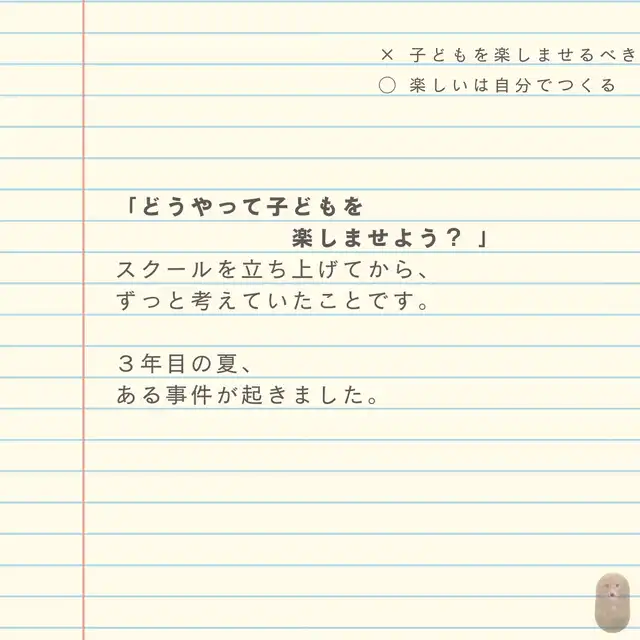 × 子どもを楽しませるべき
○ 楽しいは自分でつくる
「どうやって子どもを
楽しませよう？」
スクールを立ち上げてから、
ずっと考えていたことです。
３年目の夏、
ある事件が起きました。